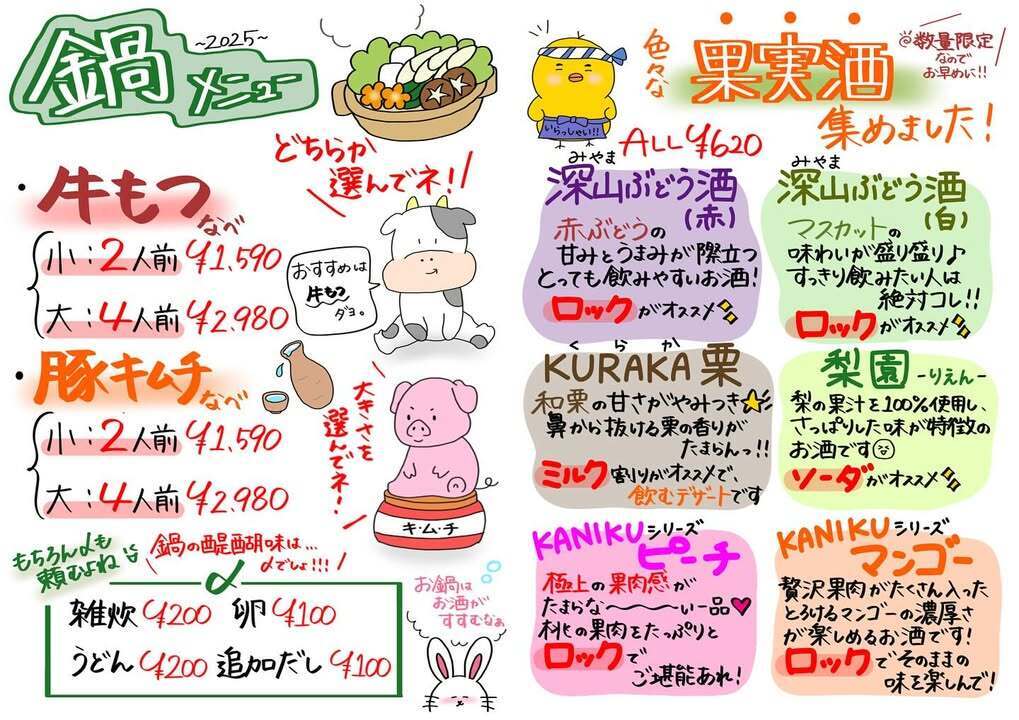 鍋
メニュー
~2025~
どちらか
選んでネ!!
・牛もつなべ
小:2人前 ¥1,590
大:4人前 ¥2,980
おすすめは
牛もつ
ダヨ。
・豚キムチなべ
小:2人前 ¥1,590
大:4人前 ¥2,980
大きさを
選んでネ!
キ・ム・チ
もちろん〆も
頼むよね
鍋の醍醐味は…
〆でしょ!!!
〆
雑炊 ¥200 卵 ¥100
うどん ¥200 追加だし ¥100
お鍋は
お酒が
すすむなぁ
いらっしゃい!!
色々な
果実酒
集めました!
@数量限定
なので
お早めに!!
ALL ¥620
みやま
深山ぶどう酒
(赤)
赤ぶどうの
甘みとうまみが際立つ
とっても飲みやすいお酒!
ロックがオススメ
みやま
深山ぶどう酒
(白)
マスカットの
味わいが盛り盛り♪
すっきり飲みたい人は
絶対コレ!!
ロックがオススメ
くらか
KURAKA 栗
和栗の甘さがやみつき
鼻から抜ける栗の香りが
たまらんっ!!
ミルク割りがオススメで、
飲むデザートです
梨園 -りえん-
梨の果汁を100%使用し、
さっぱりした味が特徴の
お酒です
ソーダがオススメ
KANIKUシリーズ
ピーチ
極上の果肉感が
たまらな〜い一品♥
桃の果肉をたっぷりと
ロックで
ご堪能あれ!
KANIKUシリーズ
マンゴー
贅沢果肉がたくさん入った
とろけるマンゴーの濃厚さ
が楽しめるお酒です!
ロックでそのままの
味を楽しんで!